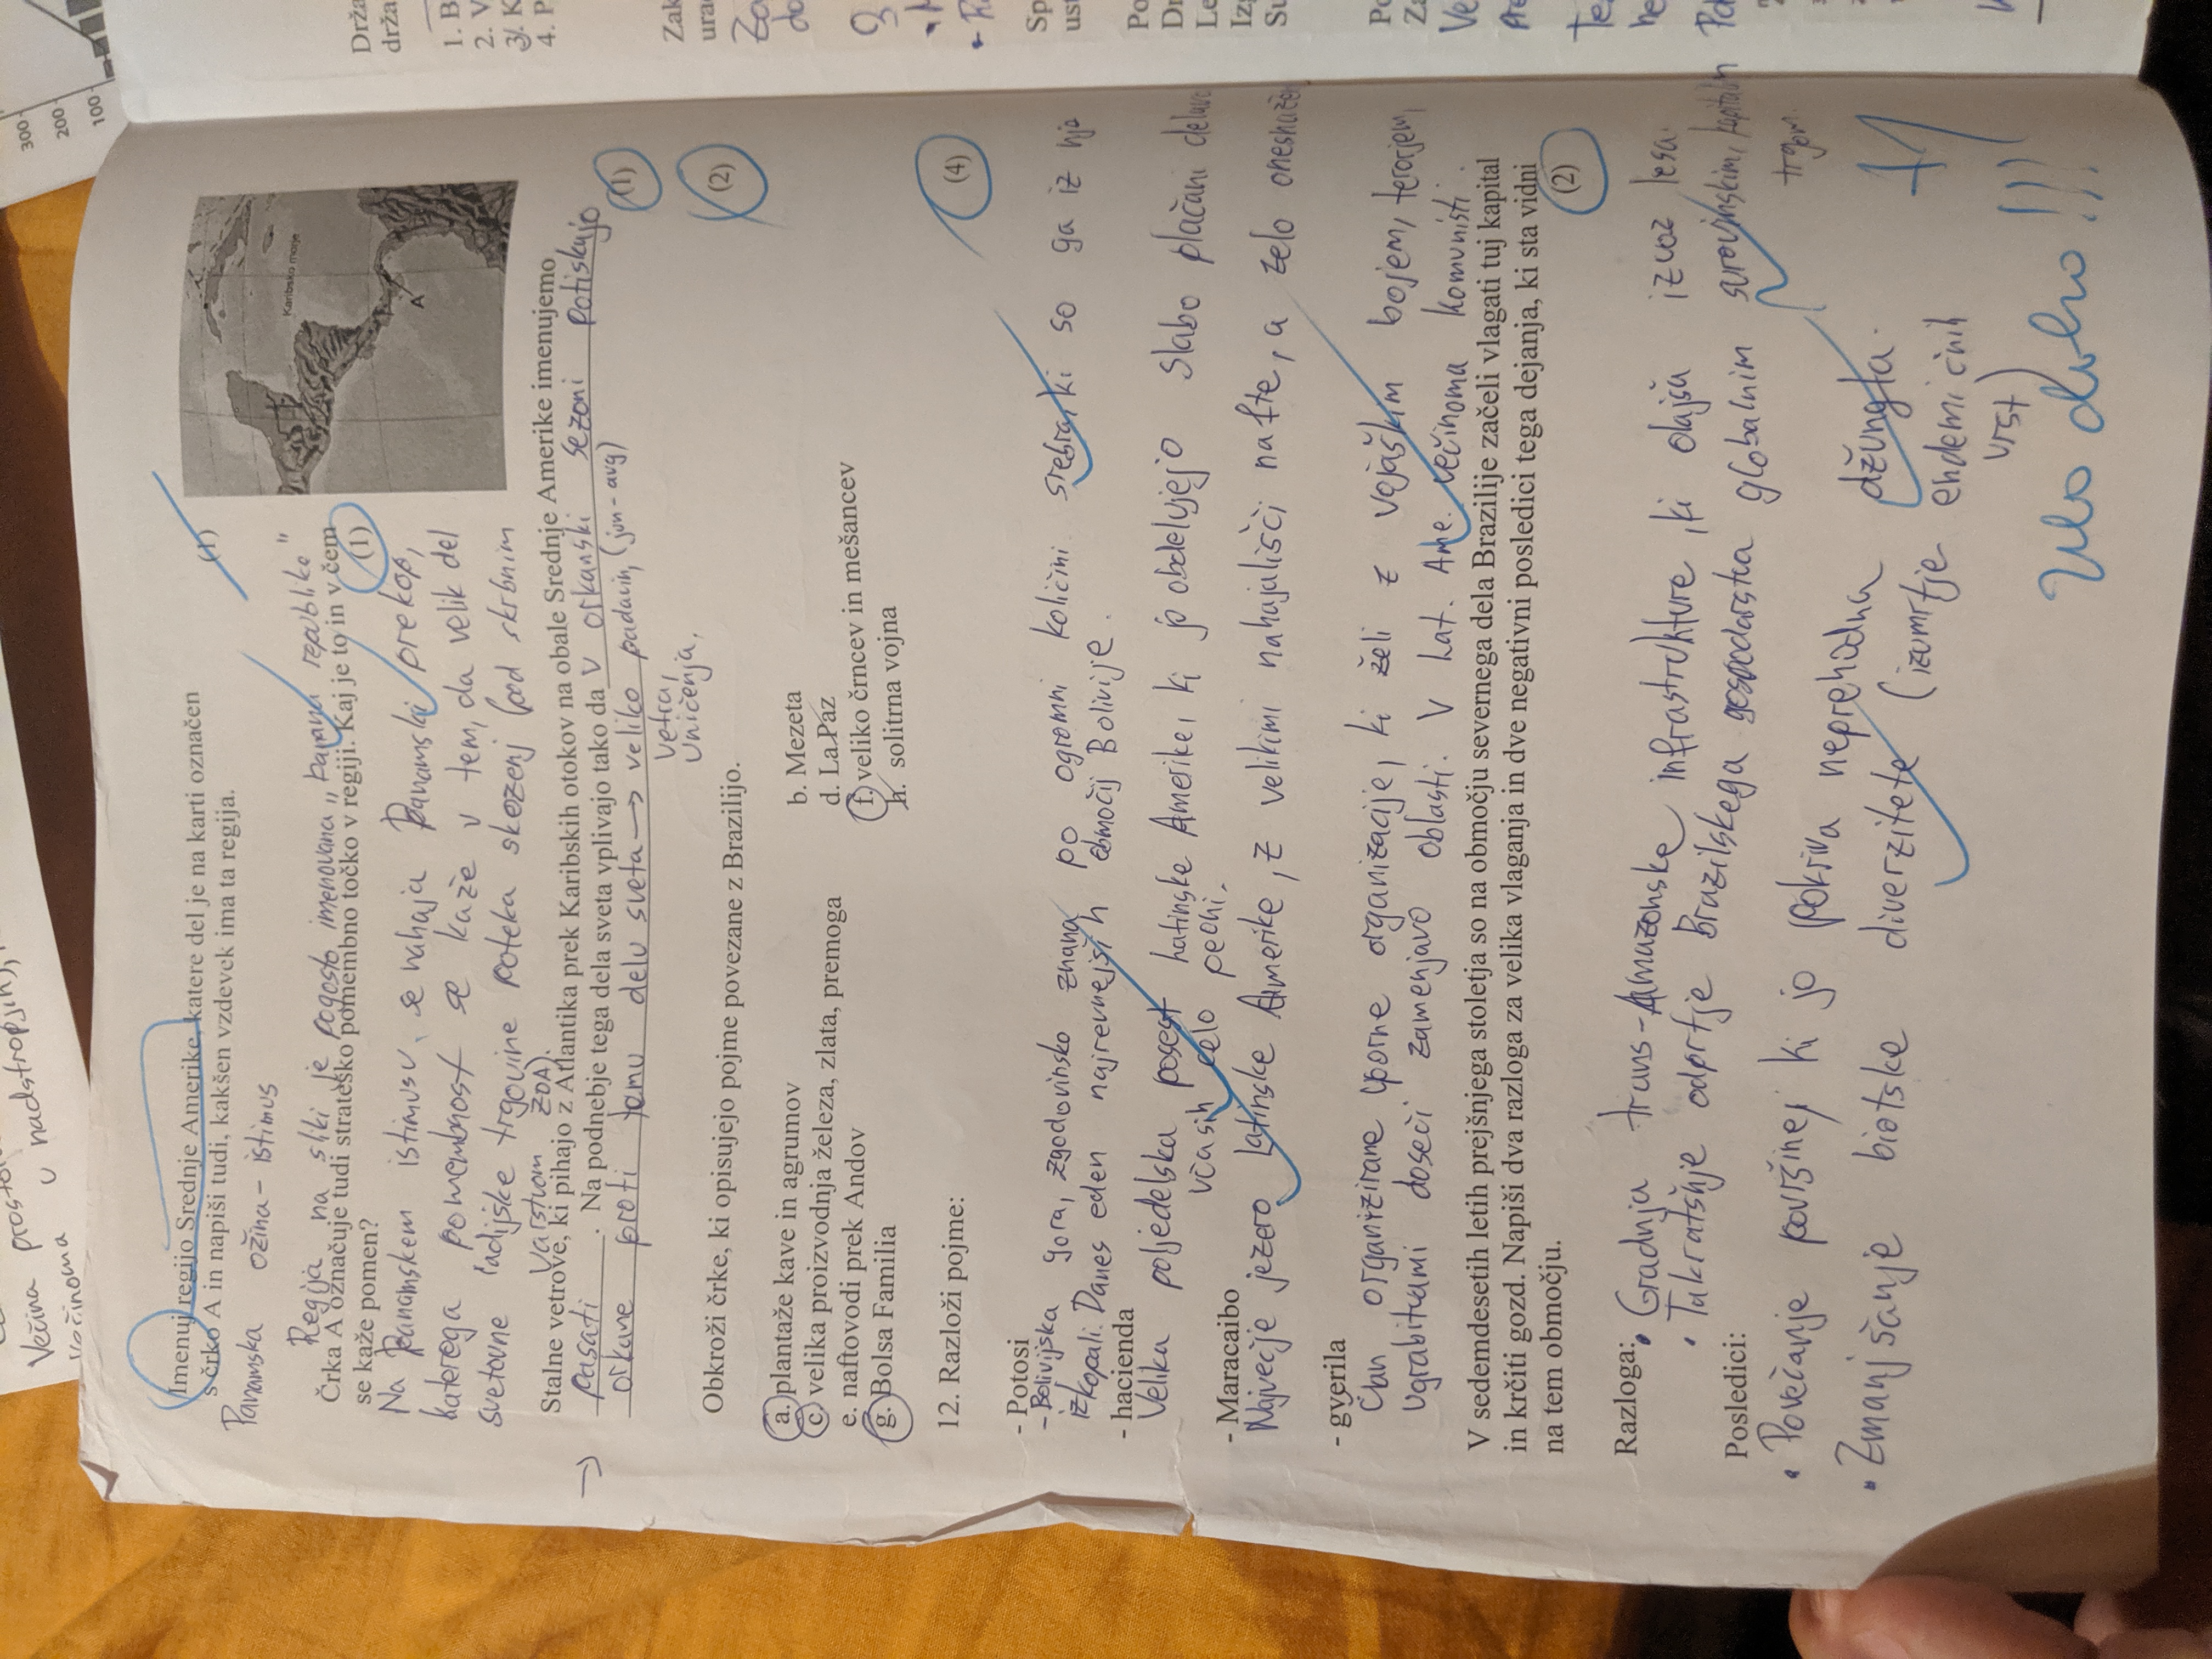 Večina
v nadstropjih),
večinoma
300
200
100
Imenuj regijo Srednje Amerike, katere del je na karti označen
s črko A in napiši tudi, kakšen vzdevek ima ta regija.
(1)
Panamska ožina - istimus
Regija na sliki je pogosto imenovana „banana republike"
Karibsko morje
A
Črka A označuje tudi strateško pomembno točko v regiji. Kaj je to in v čem
se kaže pomen?
(1)
Na Panamskem istimusu, se nahaja Panamski prekop,
katerega pomembnost se kaže v tem, da velik del
svetovne ladijske trgovine poteka skozenj (pod skrbnim
varstvom ZDA).
Stalne vetrove, ki pihajo z Atlantika prek Karibskih otokov na obale Srednje Amerike imenujemo
→ pasati. Na podnebje tega dela sveta vplivajo tako da v orkanski sezoni potiskajo
orkane proti temu delu sveta → veliko padavin, (jun - avg)
(1)
vetra,
uničenja.
Obkroži črke, ki opisujejo pojme povezane z Brazilijo.
(2)
a. plantaže kave in agrumov b. Mezeta
c. velika proizvodnja železa, zlata, premoga d. La Paz
e. naftovodi prek Andov f. veliko črncev in mešancev
g. Bolsa Familia h. solitrna vojna
12. Razloži pojme:
(4)
- Potosi
- Bolivijska gora, zgodovinsko znana po ogromni količini srebra, ki so ga iz nje
izkopali. Danes eden najrevnejših območij Bolivije.
- hacienda
Velika poljedelska posest Latinske Amerike, ki jo obdelujejo slabo plačani
včasih celo peoni.
- Maracaibo
Največje jezero Latinske Amerike, z velikimi nahajališči nafte, a zelo
- gverila
Član organizirane uporne organizacije, ki želi z vojaškim bojem, terorjem,
ugrabitvami doseči zamenjavo oblasti. V Lat. Ame. večinoma komunisti.
V sedemdesetih letih prejšnjega stoletja so na območju severnega dela Brazilije začeli vlagati tuj kapital
in krčiti gozd. Napiši dva razloga za velika vlaganja in dve negativni posledici tega dejanja, ki sta vidni
na tem območju.
(2)
Razloga: • Gradnja trans-Amazonske infrastrukture, ki olajša izvoz lesa.
• Takratšnje odprtje Brazilskega gospodarstva globalnim surovinskim,
trgom.
Posledici:
• Povečanje površine, ki jo pokriva neprehodna džungla.
• Zmanjšanje biotske diverzitete (izumrtje endemičnih
vrst)
Zelo dobro!!!